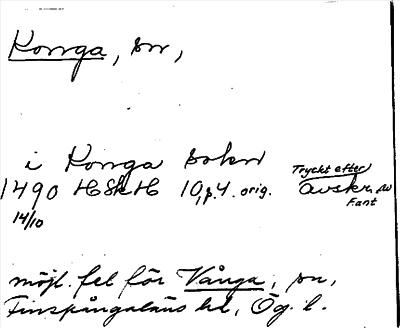 Konga, sn,
i Konga sokn
Tryckt efter
1490 HSkH 10, p. 4. orig. avskr. av
Fant
14/10
möjl. fel för Vånga, sn,
Finspångaläns hd, Ög. l.